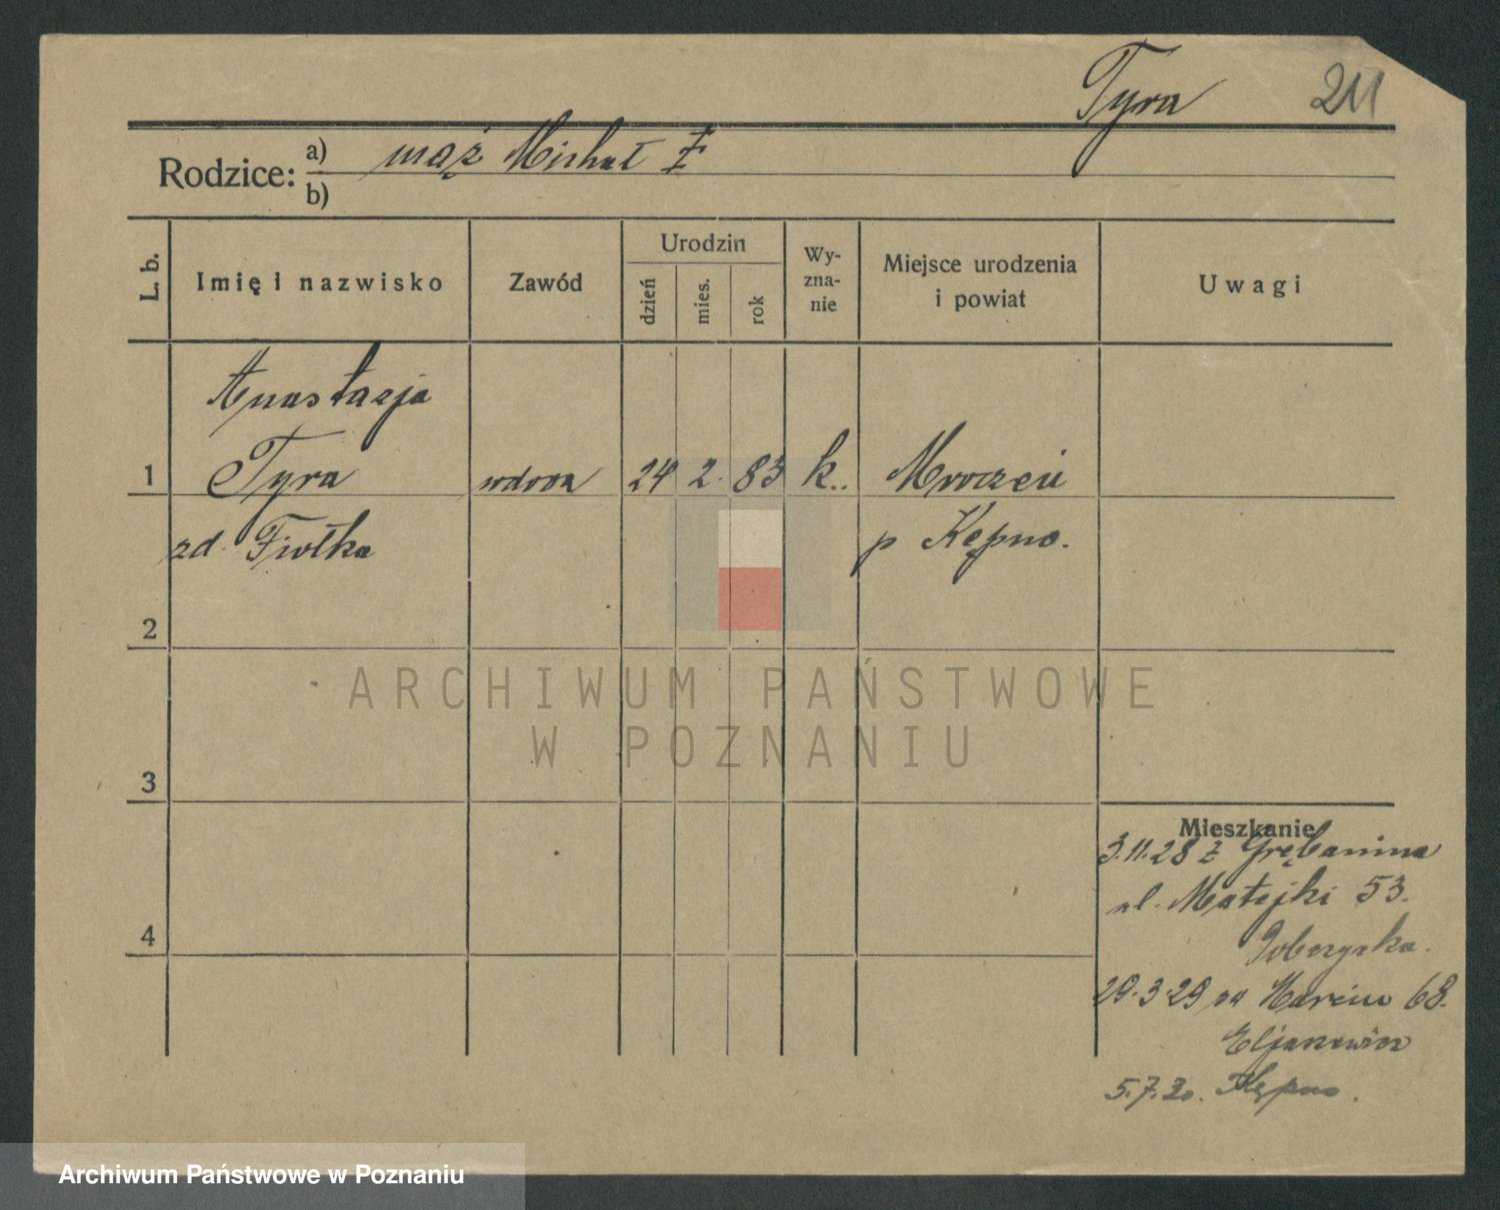 Tyra 211
Rodzice: a) mąż Michał T
b)
L. b. Imię i nazwisko Zawód Urodzin dzień mies. rok Wyznanie Miejsce urodzenia i powiat Uwagi
Anastazja
1 Tyra wdowa 24 2. 83 k.. Mroczeń
zd. Fiołka p Kępno.
2
ARCHIWUM PAŃSTWOWE
W POZNANIU
3
Mieszkanie
3.11.28 z Grębanina
ul. Matejki 53.
4
29.3.29 na Marcin 68.
5.7.30. Kępno.
Archiwum Państwowe w Poznaniu